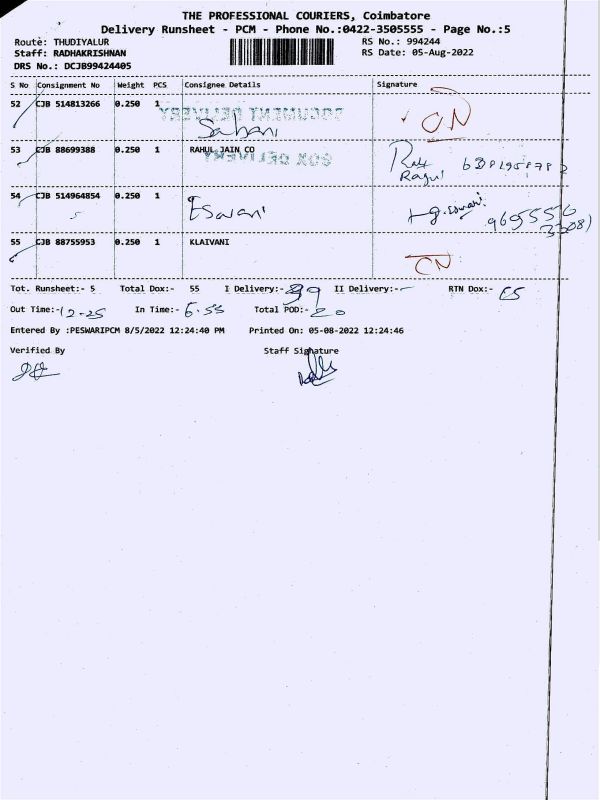 THE PROFESSIONAL COURIERS, Coimbatore
Delivery Runsheet - PCM - Phone No.:0422-3505555 - Page No.:5
Route: THUDIYALUR
RS No.: 994244
Staff: RADHAKRISHNAN
RS Date: 05-Aug-2022
DRS No.: DCJB99424405
S No Consignment No Weight PCS Consignee Details Signature
52 CJB 514813266 0.250 1
DOCUMENT DELIVERY
Sahani
CN
53 CJB 88699388 0.250 1 RAHUL JAIN CO
BOX DELIVERY
Ragul
54 CJB 514964854 0.250 1 Eswani
55 CJB 88755953 0.250 1 KLAIVANI
CN
Tot. Runsheet:- 5 Total Dox:- 55 I Delivery:-39 II Delivery:-- RTN Dox:-
Out Time:-12-25 In Time:- 6.55 Total POD:-
Entered By :PESWARIPCM 8/5/2022 12:24:40 PM Printed On: 05-08-2022 12:24:46
Verified By Staff Signature